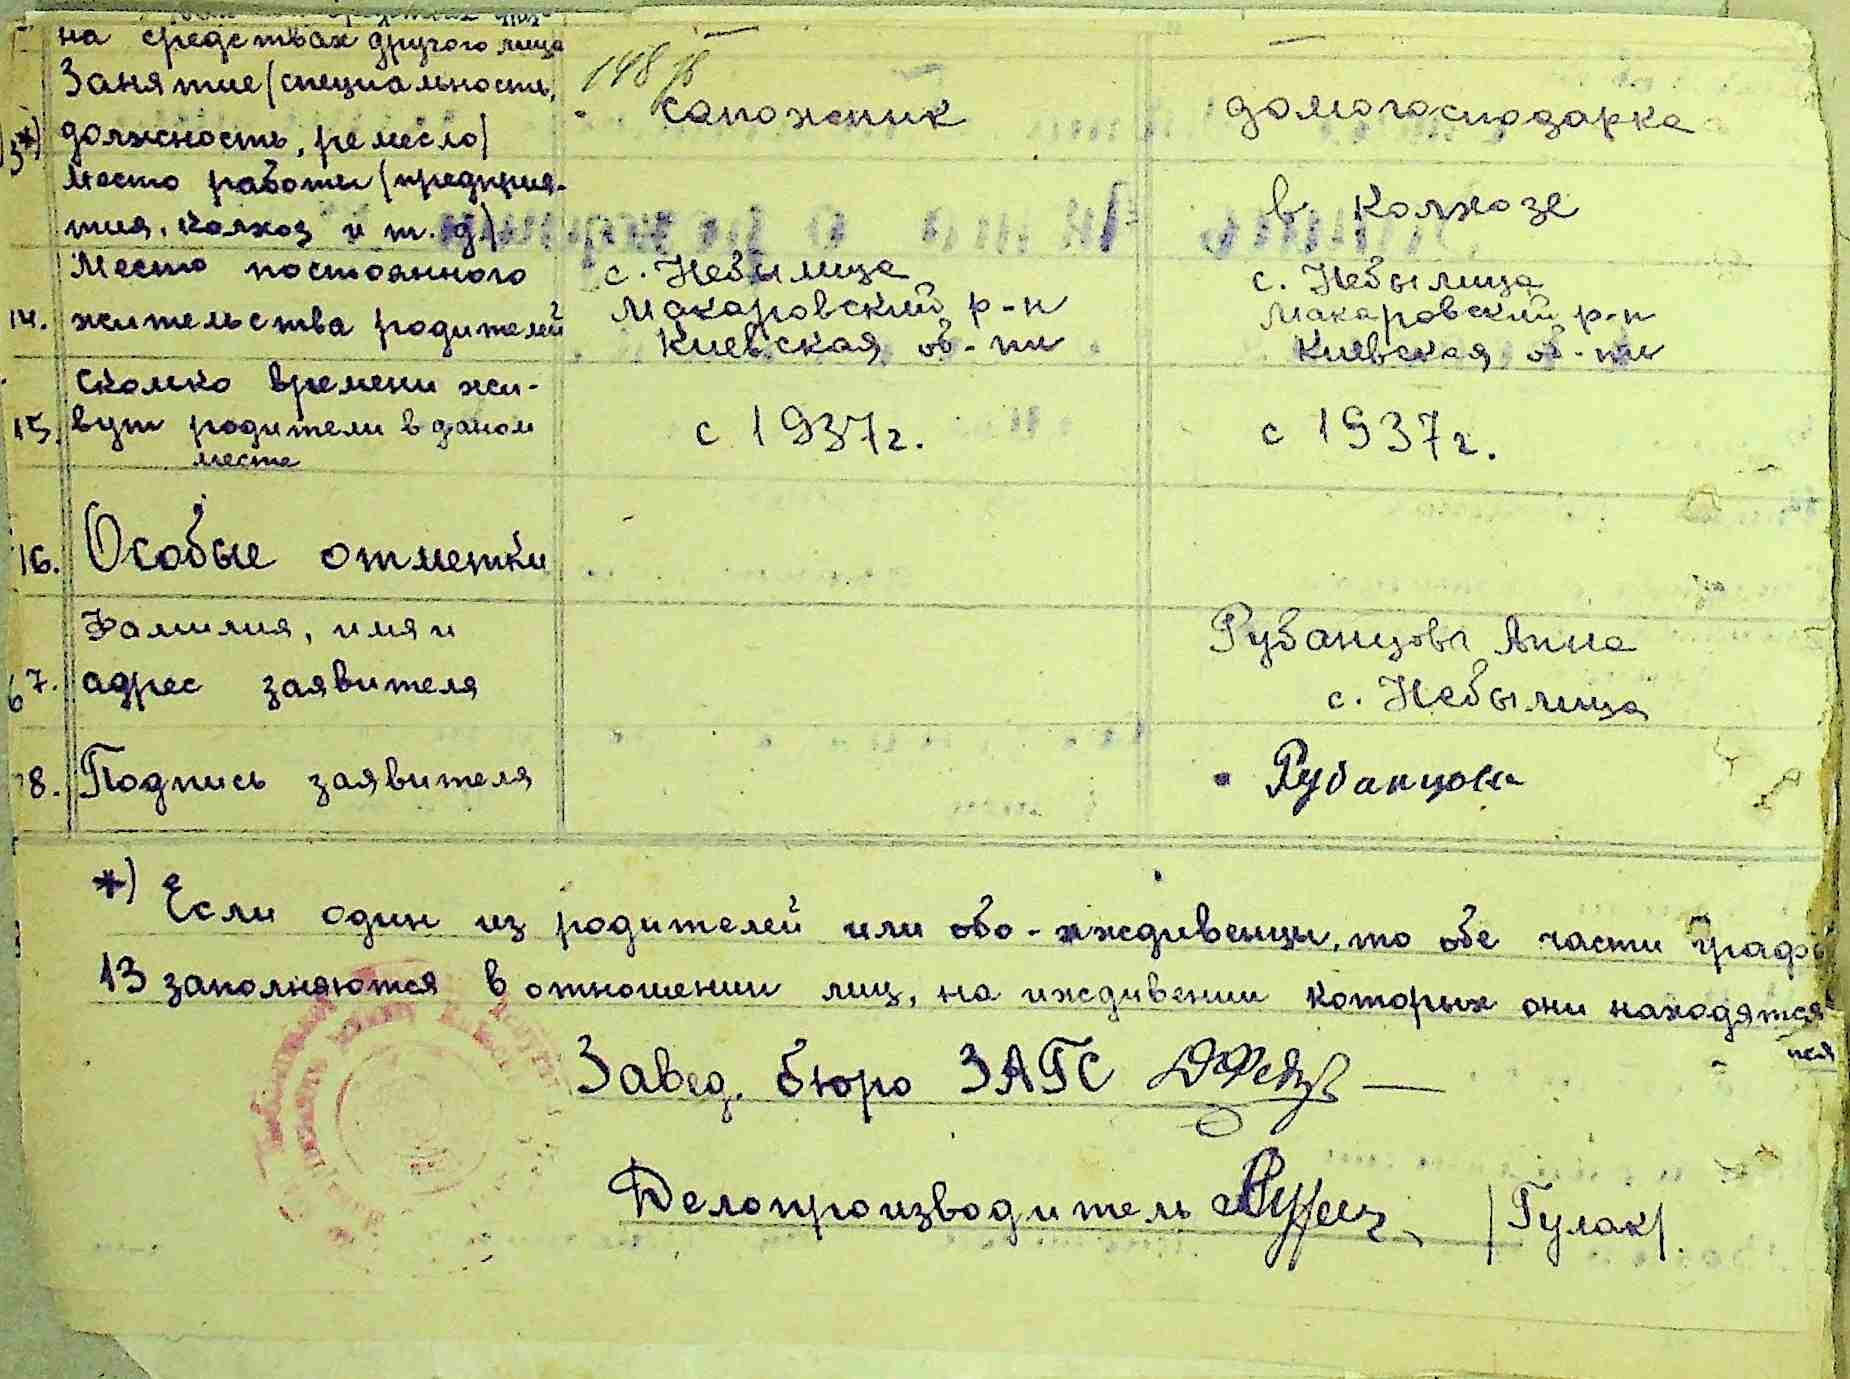 на средствах другого лица
Занятие (специальность,
148
сапожник
домогосподарка
*) должность, ремесло)
Место работы (предприя-
тия, колхоз и т. д.)
в колхозе
Место постоянного
14. жительства родителей
с. Небылица
Макаровский р-н
Киевская об-ти
с. Небылица
Макаровский р-н
Киевская об-ти
Сколько времени жи-
15. вут родители в даном
месте
с 1937г.
с 1937г.
16. Особые отметки
Фамилия, имя и
7. адрес заявителя
Рубанцова Анна
с. Небылица
8. Подпись заявителя
Рубанцова
*) Если один из родителей или обо-иждивенцы, то обе части граф
13 заполняются в отношении лиц, на иждивении которых они находятся
Завед. бюро ЗАГС
Делопроизводитель /Гулак/.